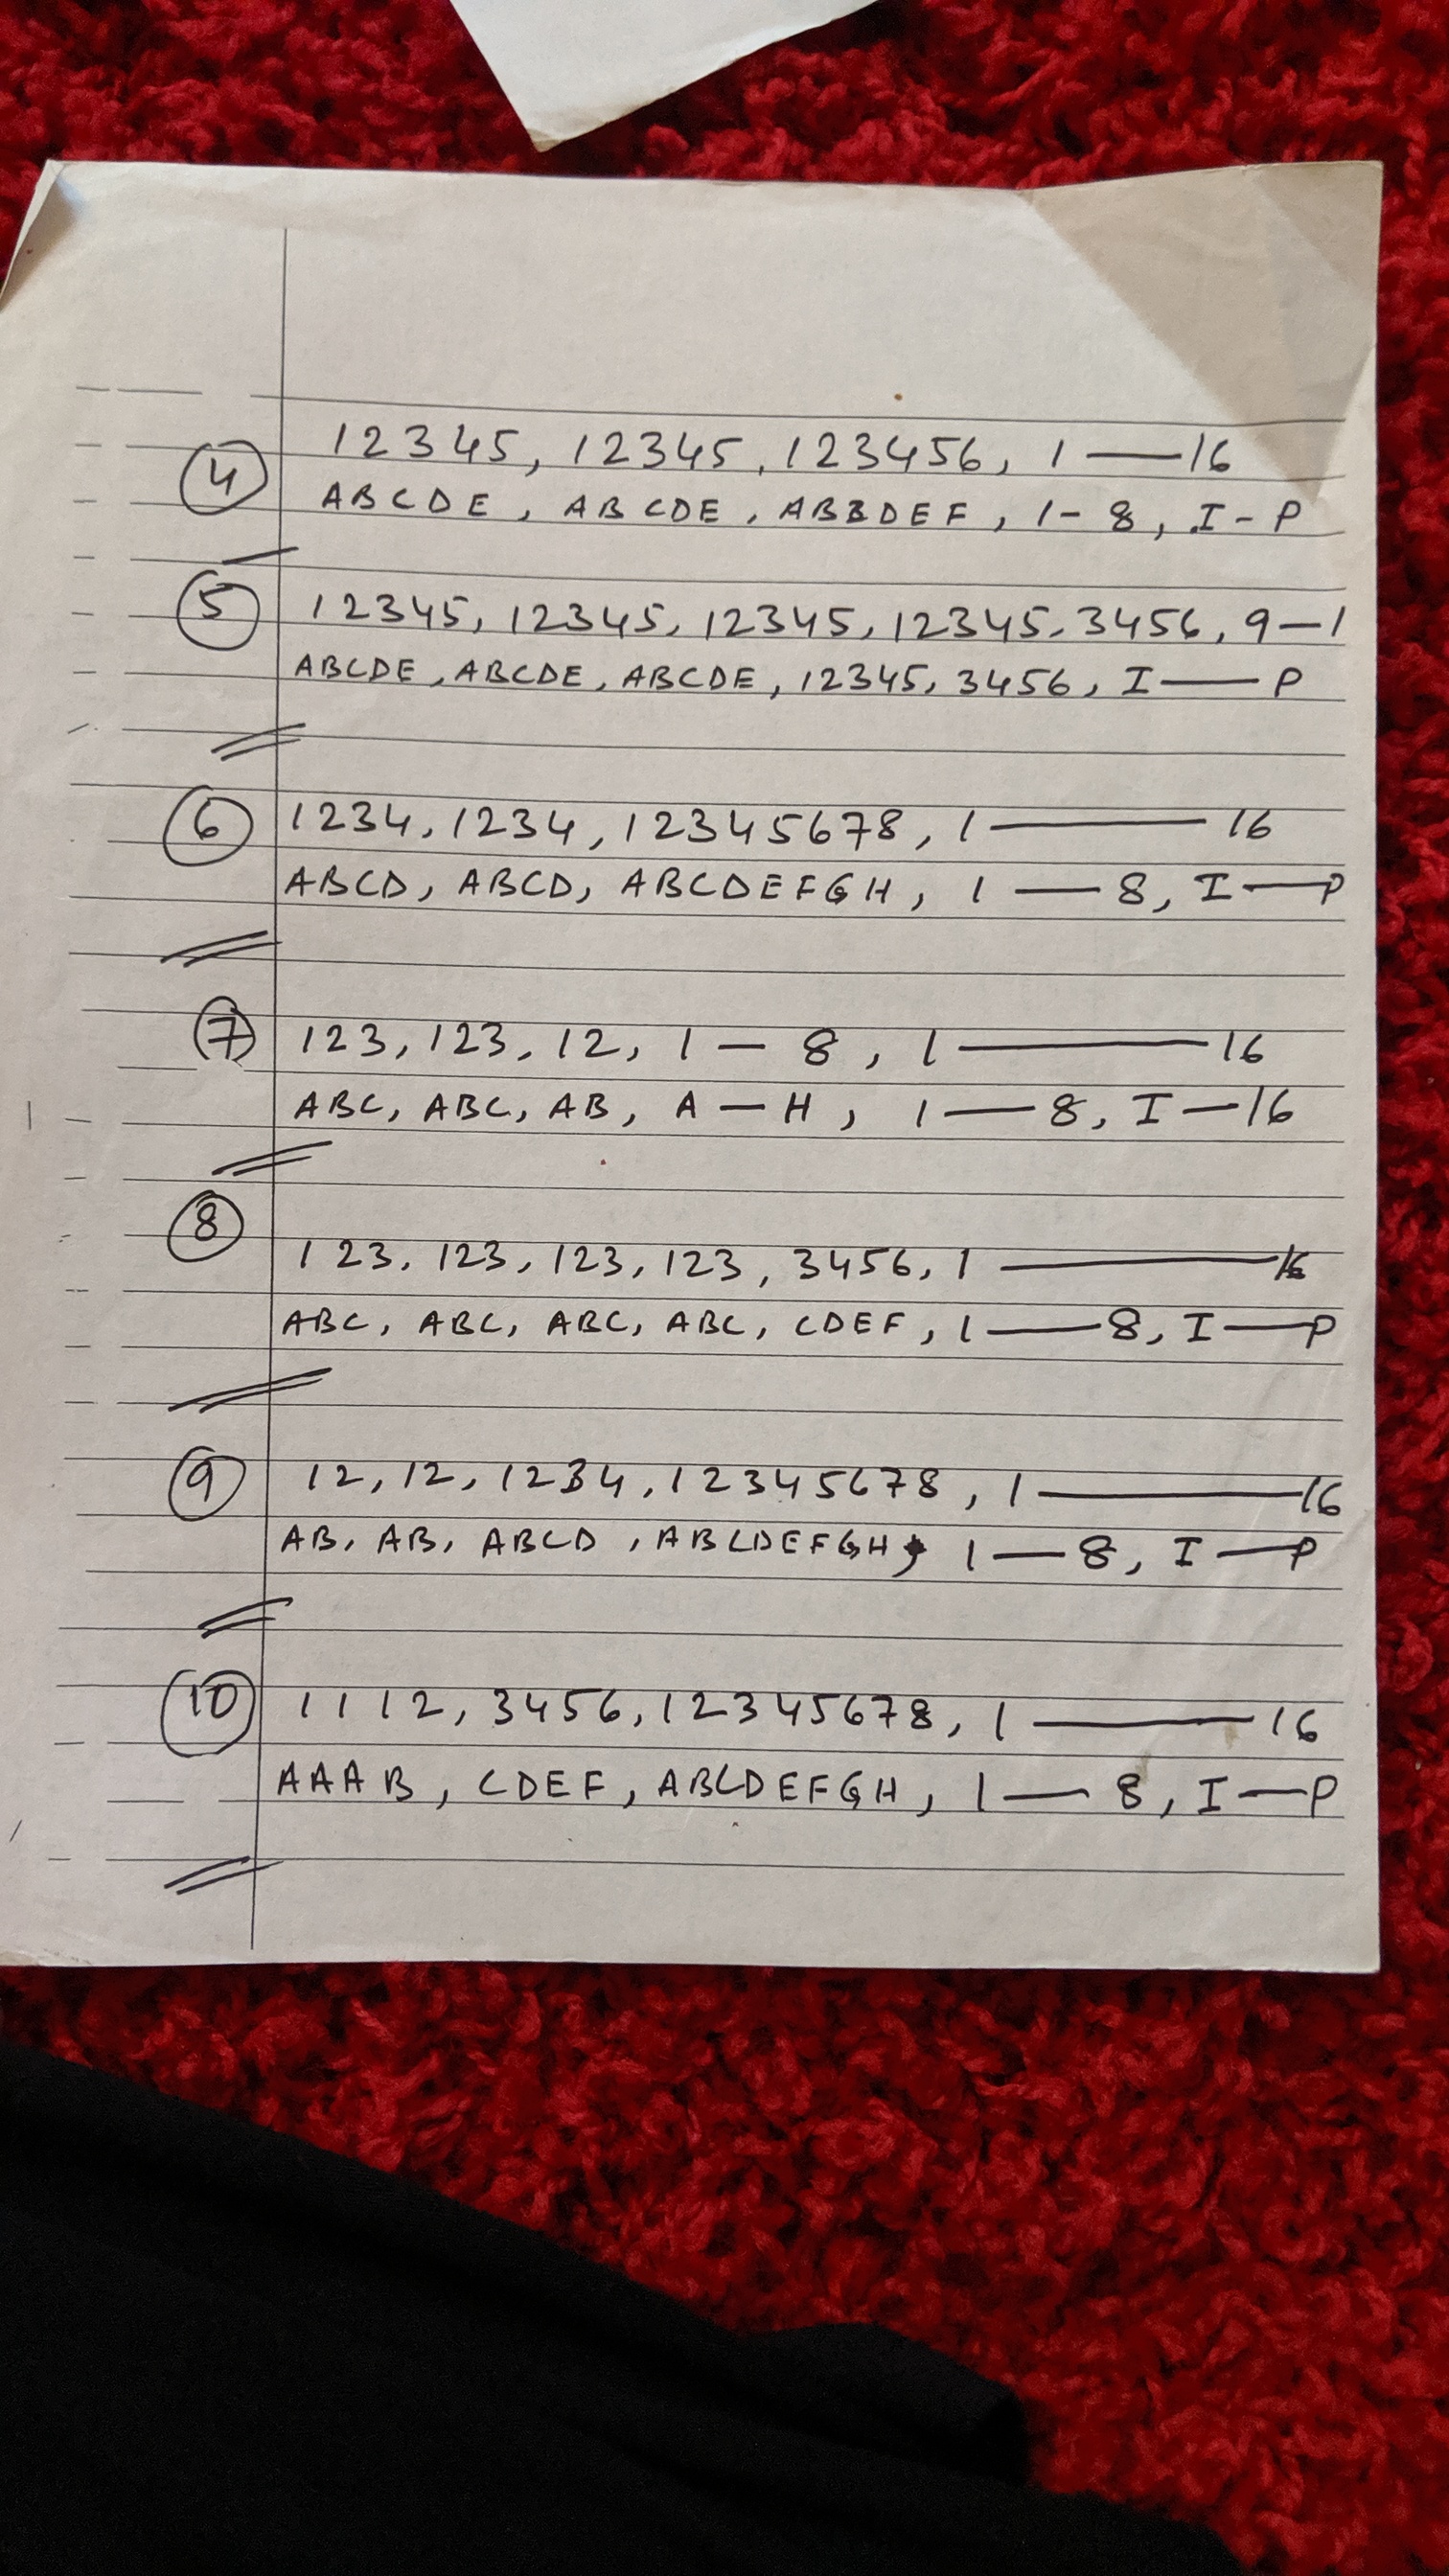 ④ 12345, 12345, 123456, 1——16
ABCDE, ABCDE, ABBDEF, 1-8, I-P
⑤ 12345, 12345, 12345, 12345, 3456, 9—1
ABCDE, ABCDE, ABCDE, 12345, 3456, I——P
⑥ 1234, 1234, 12345678, 1——16
ABCD, ABCD, ABCDEFGH, 1——8, I——P
⑦ 123, 123, 12, 1—8, 1——16
ABC, ABC, AB, A—H, 1——8, I—16
⑧ 123, 123, 123, 123, 3456, 1——16
ABC, ABC, ABC, ABC, CDEF, 1——8, I——P
⑨ 12, 12, 1234, 12345678, 1——16
AB, AB, ABCD, ABCDEFGH, 1——8, I——P
⑩ 1112, 3456, 12345678, 1——16
AAAB, CDEF, ABCDEFGH, 1——8, I——P